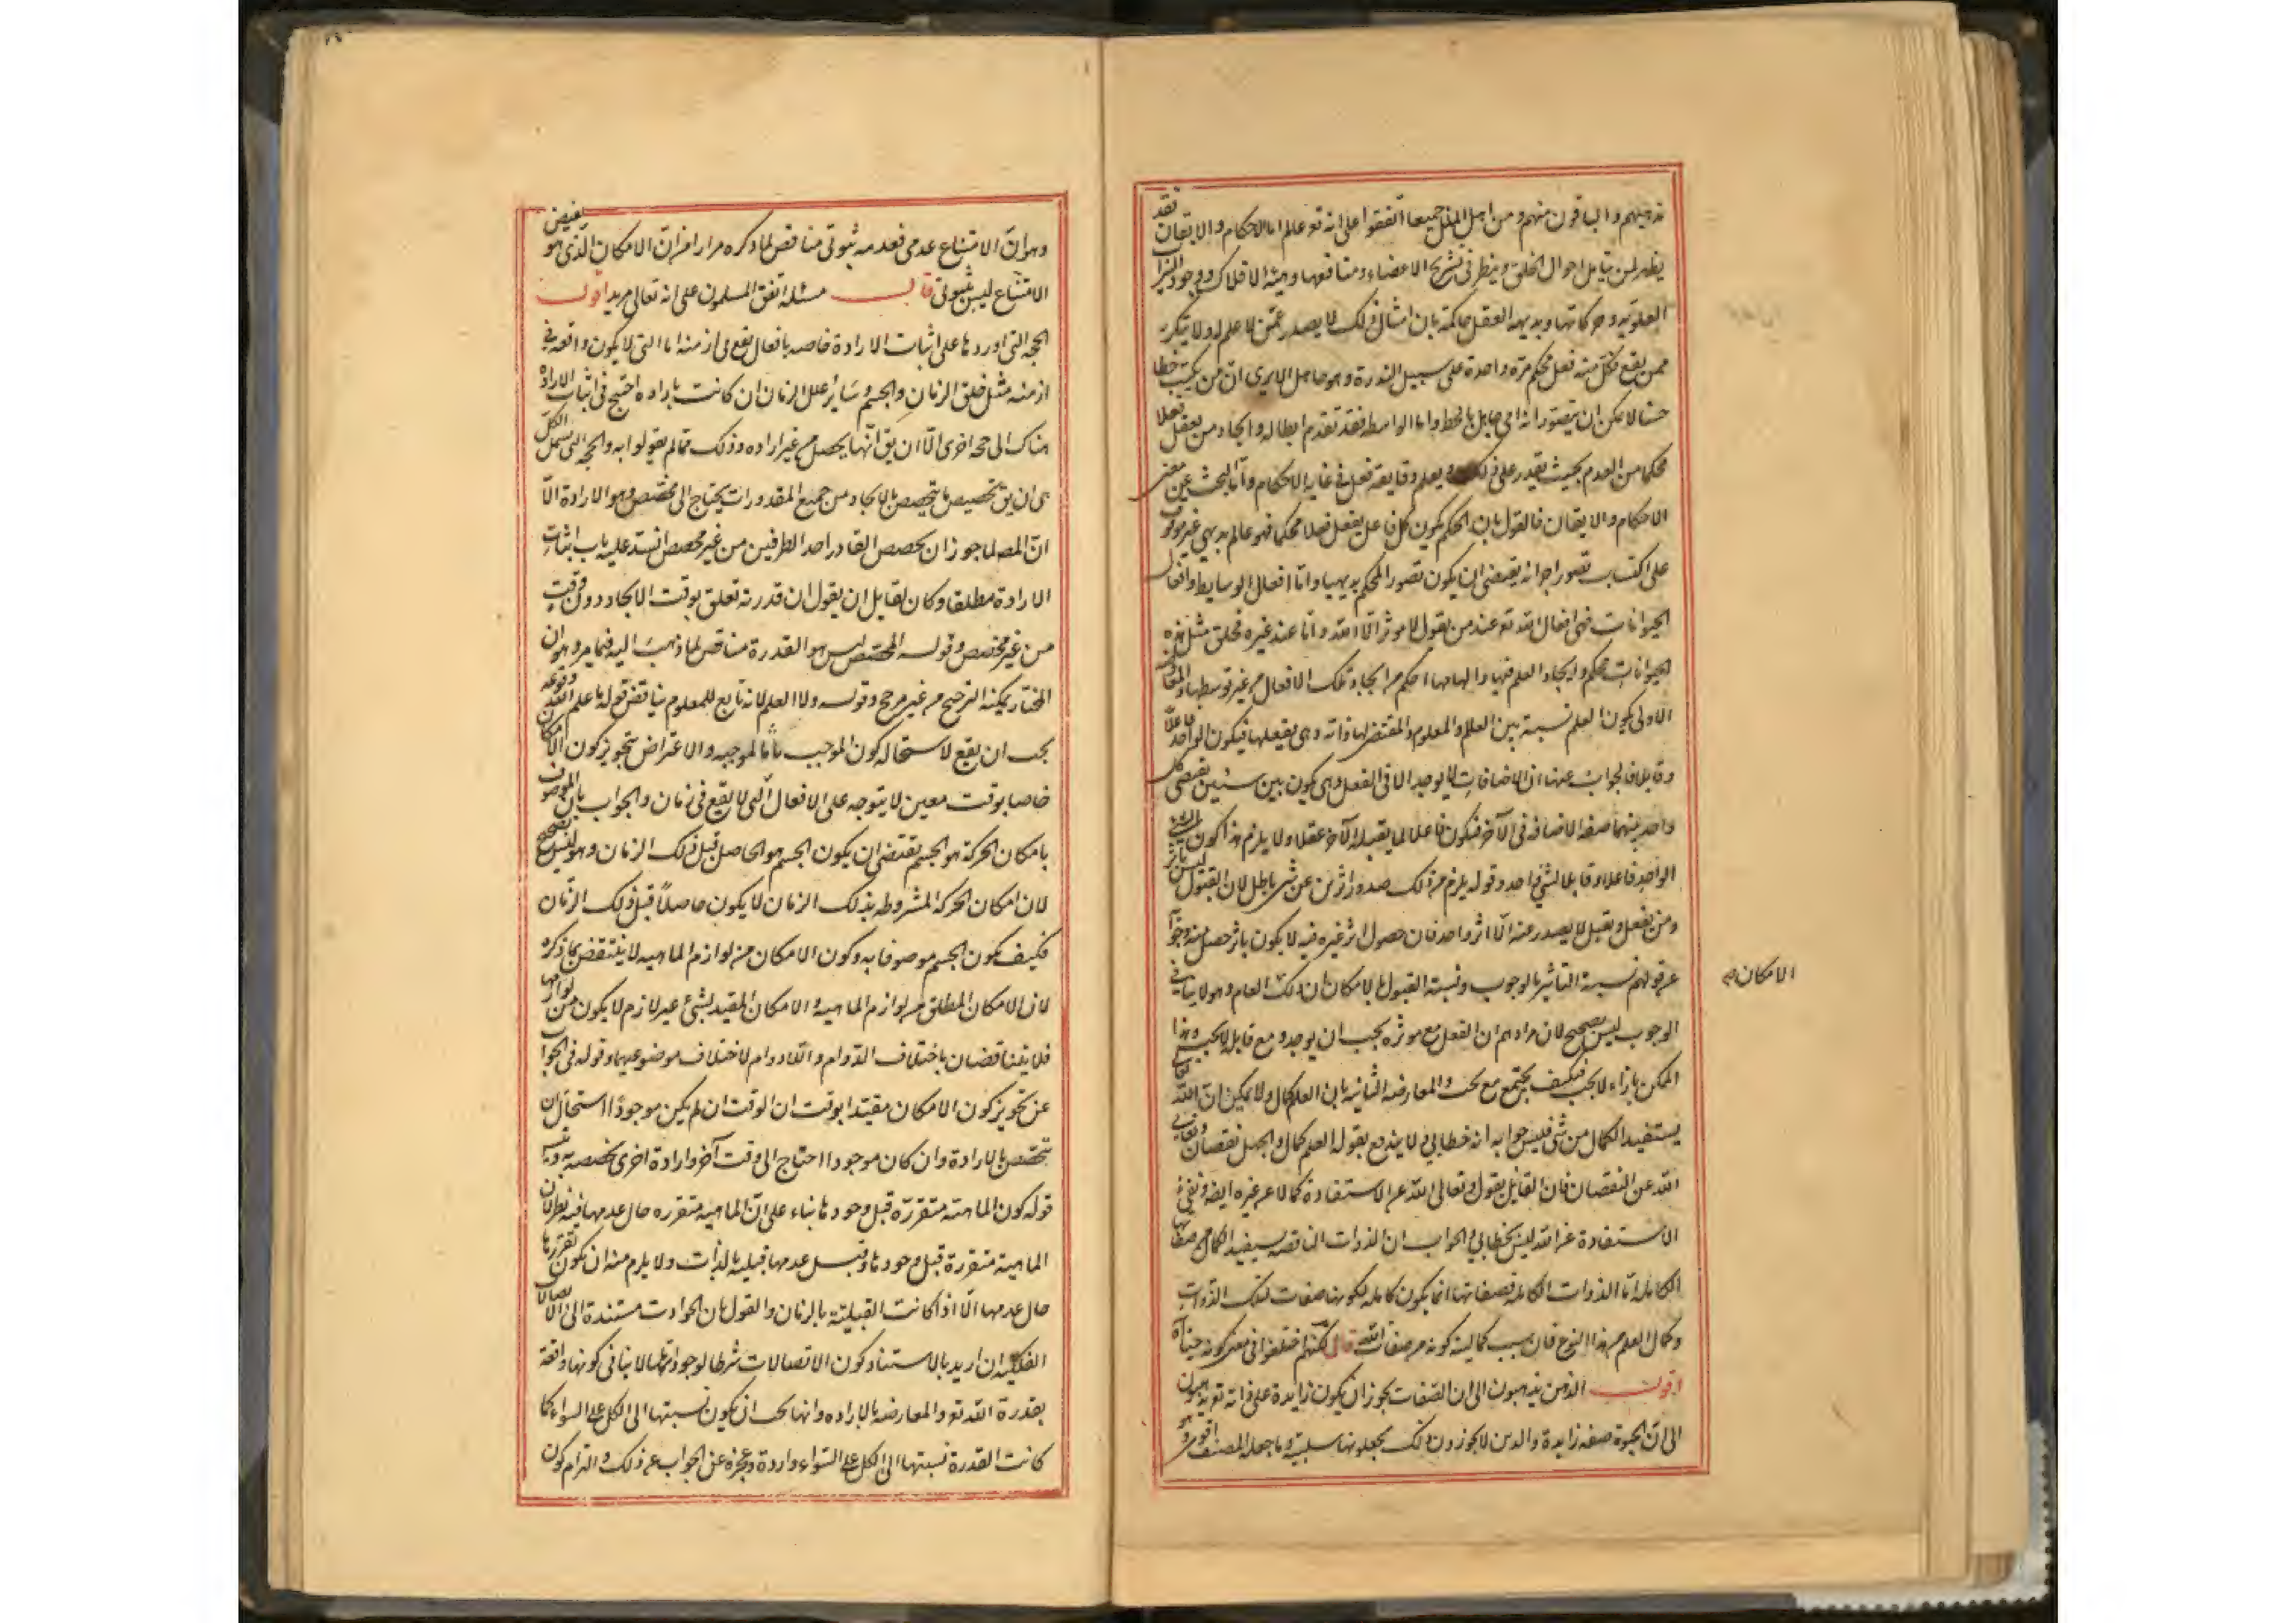 مذهبهم والباقون منهم ومن اهل الملل جميعا اتفقوا على انه تع عالم اما الاحكام والايقان فقد
يظهر لمن يتأمل احوال الخلق وينظر فى تشريح الاعضاء ومنافعها وهيئة الافلاك ووجود
العلويه وحركاتها وبديهه العقل حاكمة بان امثال ذلك لا يصدر عمن لا علم له ولا يتكرر
ممن يقع منه فعل محكم مرة واحدة على سبيل الندرة وهو جاهل الا يرى ان من يكتب خطا
حسنا لا يمكن ان يتصور انه امى جاهل بالخط واما الواسطه فقد تقدم ابطاله وايجاد من يفعل فعلا
محكما من العدم بحيث يقدر على ذلك ويعلم دقايقه فعل فى غاية الاحكام واما البحث عن معنى
الاحكام والايقان فالقول بان الحكم بكون كل فاعل يفعل فعلا محكما فهو عالم بديهى غير موقوف
على اكتساب تصور اجزائه يقتضى ان يكون تصور المحكم بديهيا واما افعال الوسايط وافعال
الحيوانات فهى افعال الله تع عند من يقول لا موثر الا الله واما عند غيره فخلق مثل هذه
الحيوانات محكم وايجاد العلم فيها والهامها احكم من ايجاد تلك الافعال من غير توسطها والمعارضة
الاولى بكون العلم نسبة بين العالم والمعلوم والمقتضى لها ذاته وهى يقبلها فيكون الواحد فاعلا
وقابلا فالجواب عنها ان الاضافات لا يوجد الا فى العقل وهى يكون بين شيئين يقتضى كل
واحد منهما صفه الاضافه فى الآخر فيكون فاعلا لما يقبله الآخر عقلا ولا يلزم من هذا كون
الواحد فاعلا وقابلا لشئ واحد وقوله يلزم من ذلك صدور اثرين عن شئ باطل لان القبول ليس تأثر
ومن يفعل ويقبل لا يصدر عنه الا اثر واحد فان حصول اثر غيره فيه لا يكون باثر حصل منه وجوابه
عن قولهم نسبة التأثير بالوجوب ونسبة القبول بالامكان بان ذلك العام وهو لا ينافى
الوجوب ليس بصحيح لان مرادهم ان الفعل مع موثره يجب ان يوجد ومع قابله لا يجب وهذا
الممكن بازاء لا يجب فكيف يجتمع مع يجب والمعارضه الثانية بان العلم كمال ولا يمكن ان الله تعالى
يستفيد الكمال من شئ فليس جوابه انه خطابى ولا يندفع بقوله العلم كمال والجهل نقصان وتعالى
الله عن النقصان فان القائل يقول وتعالى الله عن الاستفادة كمالا عن غيره ايضه ونفى
الاستفادة عن الله ليس بخطابى والجواب ان الذوات الناقصه يستفيد الكمال من صفاتها
الكامله اما الذوات الكامله فصفاتها انما يكون كامله لكونها صفات لتلك الذوات
وكمال العلم من هذا النوع فان سبب كماليته كونه من صفات الله قال لكنهم اختلفوا فى معنى كونه حيا
اقول الذين يذهبون الى ان الصفات يجوز ان يكون زايدة على ذاته تع يذهبون
الى ان الحيوة صفه زايدة والذين لا يجوزون ذلك يجعلونها سلبية وما جعله المصنف
الامكان صح
وهو ان الامتناع عدمى فعدمه ثبوتى مناقض لما ذكره مرارا من ان الامكان الذى هو نقيض
الامتناع ليس بثبوتى قال مسئله اتفق المسلمون على انه تعالى مريد اقول
الحجه التى اوردها على اثبات الارادة خاصه بافعال يقع فى ازمنه اما التى لا يكون واقعه فى
ازمنه مثل خلق الزمان والجسم وسائر علل الزمان ان كانت بارادة احتيج فى اثبات الارادة
هناك الى حجه اخرى الا ان يق انها يحصل من غير اراده وذلك مما لم يقولوا به والحجه التى يشمل الكل
هى ان يق تخصيص ما يخصص بالايجاد من جميع المقدورات يحتاج الى مخصص وهو الارادة الا
ان المصـ لما جوز ان يخصص القادر احد الطرفين من غير مخصص انسد عليه باب اثبات
الارادة مطلقا وكان لقائل ان يقول ان قدرته تعلق بوقت الايجاد دون وقت
من غير مخصص وقوله المخصص ليس هو القدرة مناقض لما ذهب اليه فيما مر وهو ان
المختار يمكنه الترجيح من غير مرجح وقوله ولا العلم لانه تابع للمعلوم يناقض قوله ما علم الله وقوعه
يجب ان يقع لاستحاله كون الموجب تابعا لموجبه والاعتراض بتجويز كون الامكان
خاصا بوقت معين لا يتوجه على الافعال التى لا يقع فى زمان والجواب بان الموصوف
بامكان الحركة هو الجسم يقتضى ان يكون الجسم هو الحاصل قبل ذلك الزمان وهو ليس بصحيح
لان امكان الحركة المشروطه بذلك الزمان لا يكون حاصلا قبل ذلك الزمان
فكيف يكون الجسم موصوفا به وكون الامكان من لوازم الماهيه لا ينتقض بما ذكره
لان الامكان المطلق من لوازم الماهية والامكان المقيد بشئ غير لازم لا يكون من لوازمها
فلا يتناقضان باختلاف الدوام واللادوام لاختلاف موضوعيهما وقوله فى الجواب
عن تجويز كون الامكان مقيدا بوقت ان الوقت ان لم يكن موجودا استحال ان
يتخصص بالارادة وان كان موجودا احتاج الى وقت آخر وارادة اخرى يخصصه به
قوله كون الماهية متقررة قبل وجودها بناء على ان الماهية متقرره حال عدمها فيه نظر لان
الماهية متقررة قبل وجودها وقبل عدمها قبلية بالذات ولا يلزم منه ان يكون تقررها
حال عدمها الا اذا كانت القبلية بالزمان والقول بان الحوادث مستندة الى الاتصالات
الفلكية ان اريد بالاستناد كون الاتصالات شرطا لوجودها لا ينافى كونها واقعة
بقدرة الله تع والمعارضه بالاراده وانها يجب ان يكون نسبتها الى الكل على السواء كما
كانت القدرة نسبتها الى الكل على السواء واردة وعجزه عن الجواب عن ذلك والتزام كون